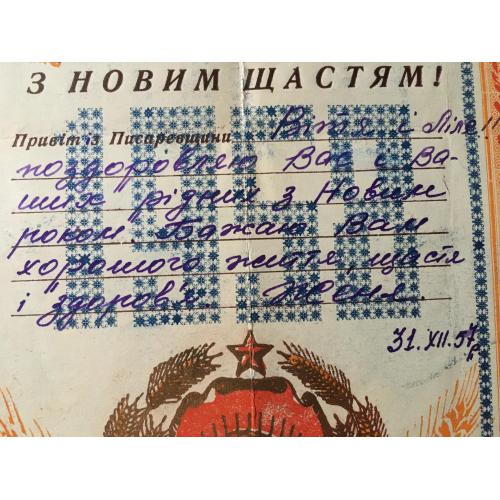 З НОВИМ ЩАСТЯМ!
Привіт із Писаревщини Вітя і Ліле!!
поздоровляю Вас і Ва-
ших рідних з Новим
роком. Бажаю Вам
хорошого життя, щастя
і здоров'я. Женя.
31.XII.57 р.
1958